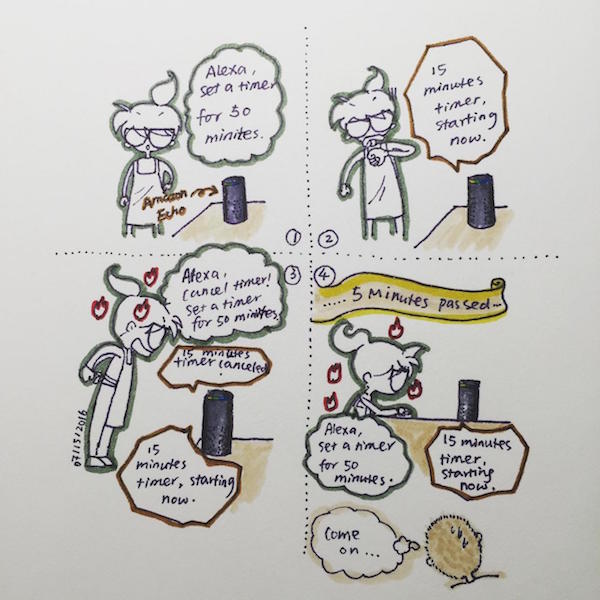 Alexa,
set a timer
for 50
minites.
Amazon
Echo
1
15
minutes
timer,
starting
now.
2
3
Alexa,
cancel timer!
set a timer
for 50 minutes
15 minutes
timer canceled
15
minutes
timer, starting
now.
07/15/2016
4
...... 5 minutes passed...
Alexa,
set a timer
for 50
minutes.
15 minutes
timer,
starting
now.
Come
on...